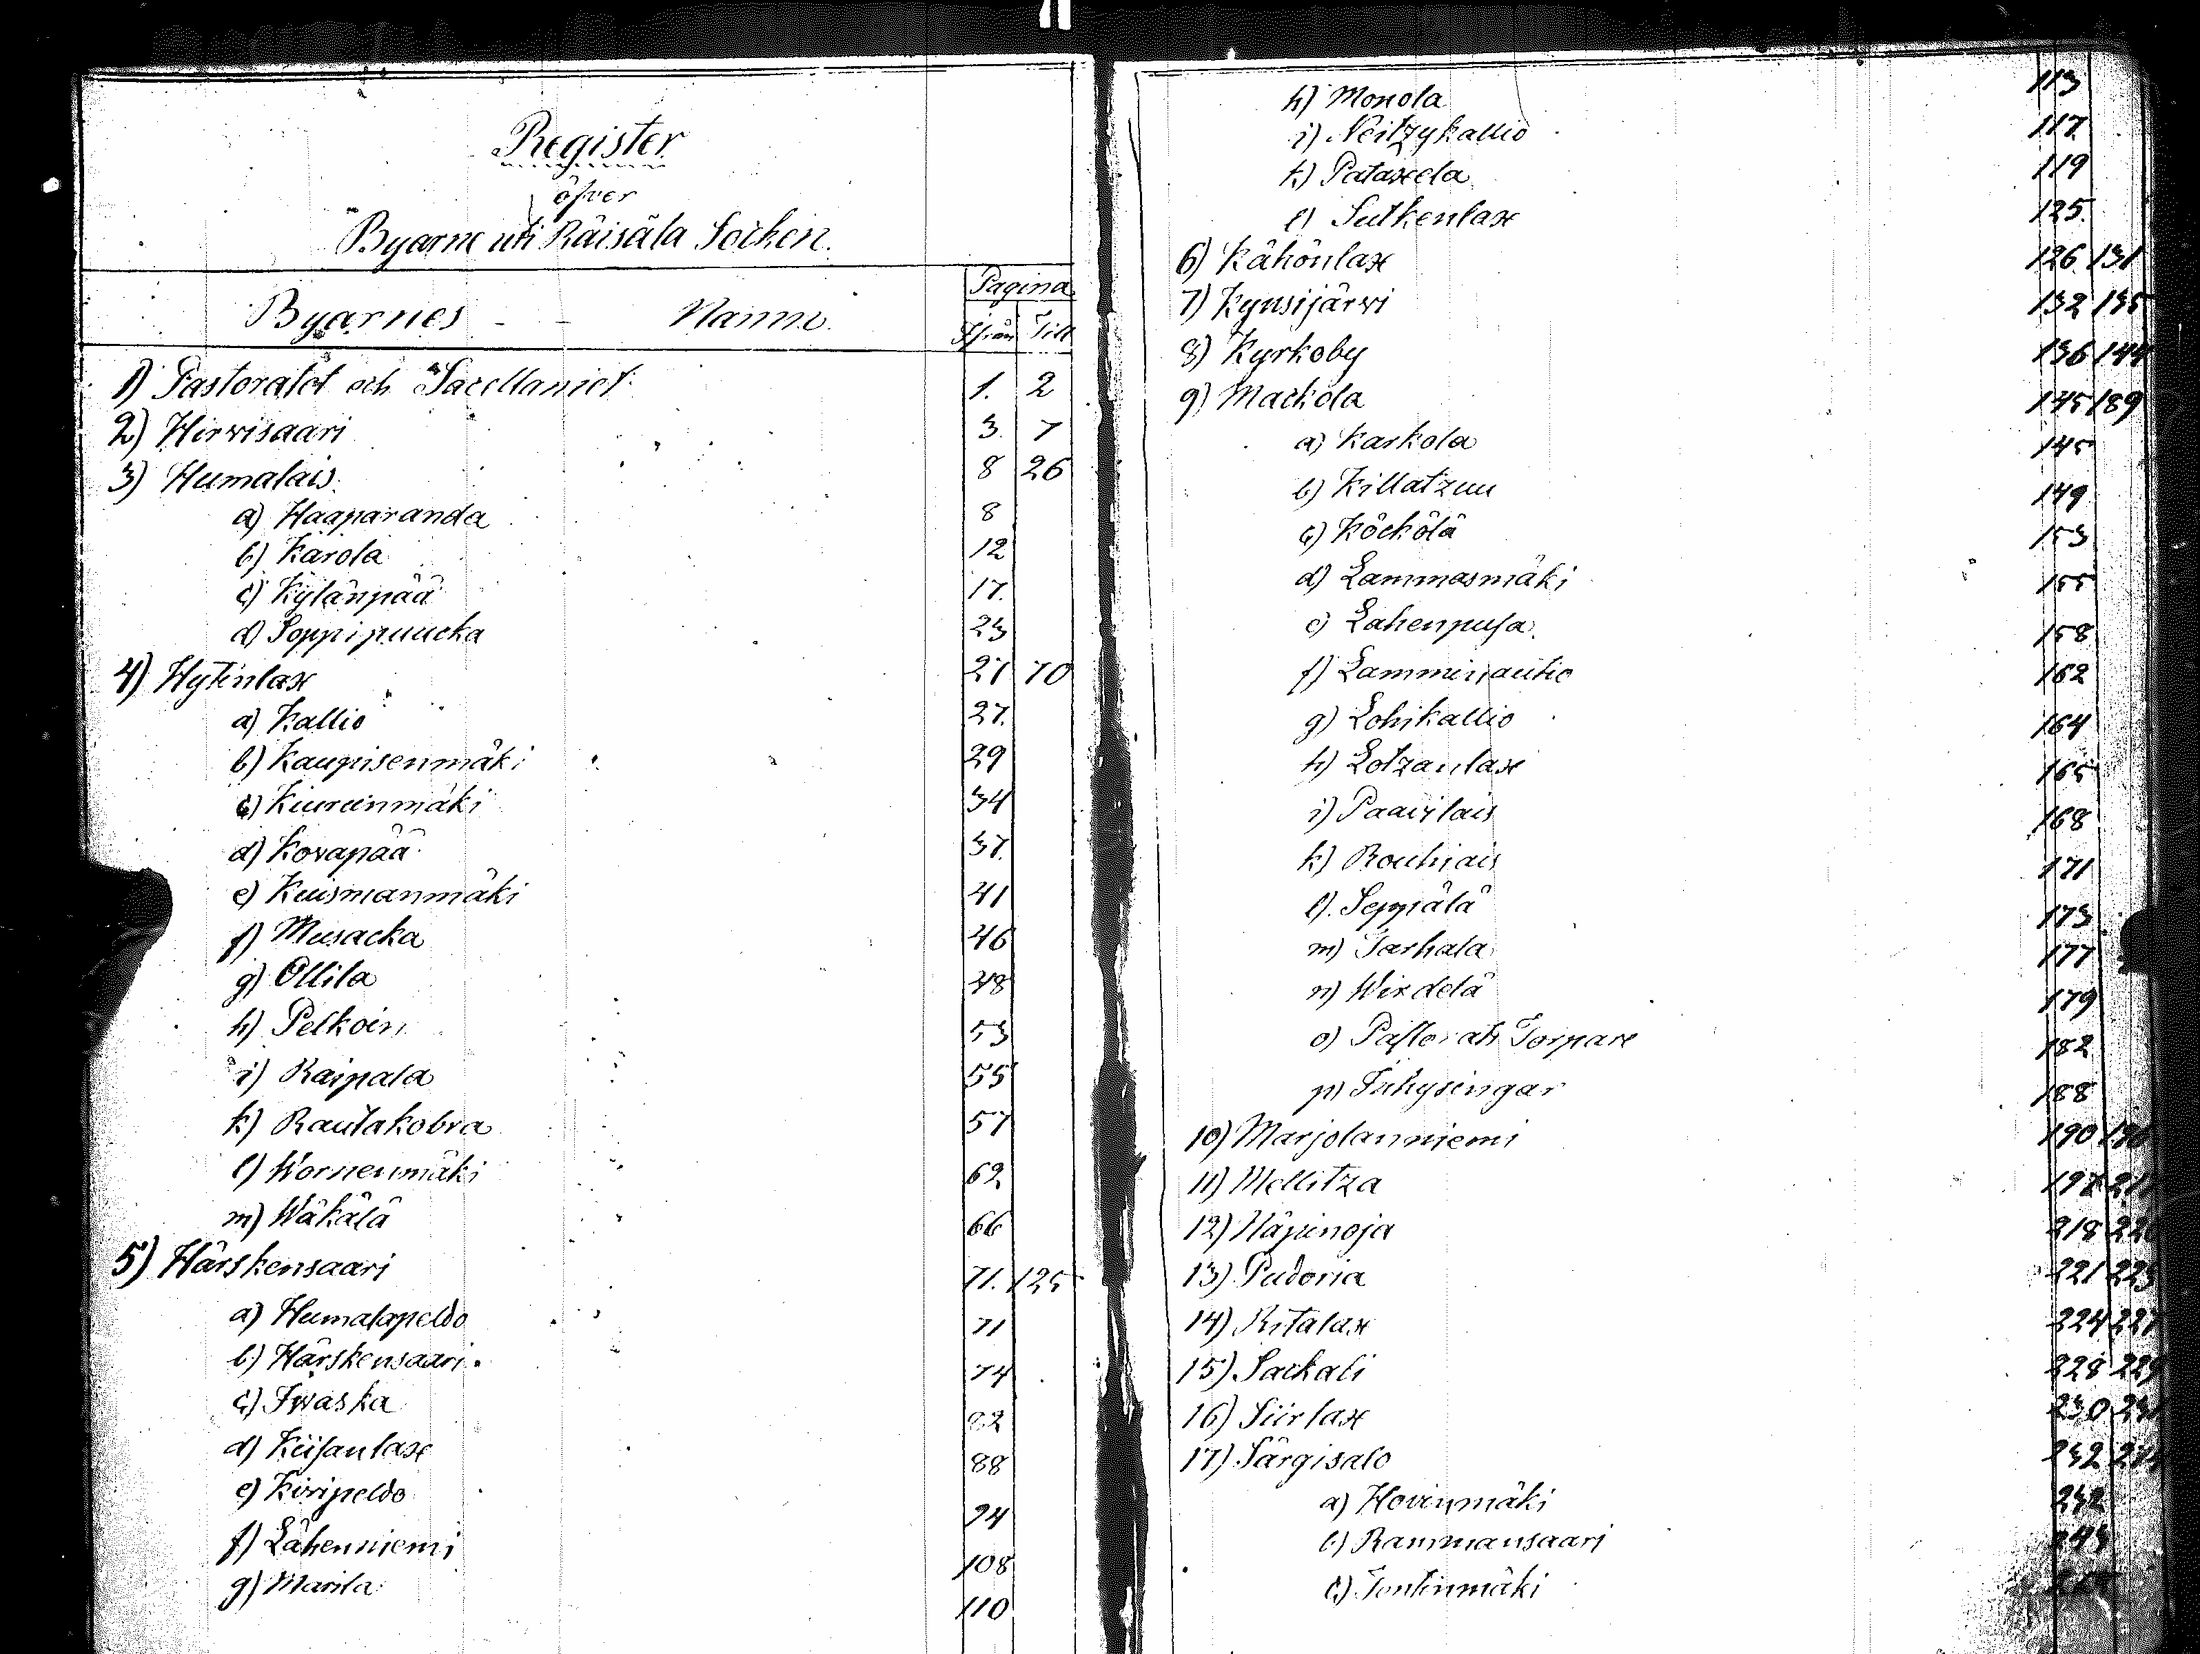 Register
öfver
Byarne uti Räisälä Socken.
Byarnes - - Namn.
Pagina
Ifrån Till
1) Pastoratet och Sacellaniet 1. 2
2) Hirvisaari 3. 7
3) Humalais. 8 26
a) Haaparanda 8
b) Karola 12
c) Kylänpää 17.
d) Soppipuucka 23
4) Hytinlax 27 70
a) Kallio 27.
b) Kaupisenmäki 29
c) Kiurunmäki 34
d) Kovapää 37.
e) Kuismanmäki 41
f) Musacka 46
g) Ollila 48
h) Pelkoin 53
i) Raipala 55
k) Rautakobra 57
l) Wornenmäki 62
m) Wäkälä 66
5) Härskensaari 71. 125
a) Humalapeldo 71
b) Härskensaari. 74
c) Iwaska 82
d) Kiisanlax 88
e) Kiripeldo 94
f) Lähenniemi 108
g) Marila 110
h) Monola 113
i) Neitzykallio 117
k) Pataxela 119
l) Sutkenlax 125.
6) Kähönlax 126 131
7) Kynsijärvi 132 135
8) Kyrkoby 136 144
9) Mackola 145 189
a) Karkola 145
b) Killatzuu 149
c) Köckölä 153
d) Lammasmäki 155
e) Lahenpusa. 158
f) Lamminautio 162
g) Lohikallio 164
h) Lotzanlax 165
i) Paavilais 168
k) Rouhiais 171
l) Seppälä 173
m) Tarhala 177
n) Wirdelä 179
o) Pastorats Torpare 182
p) Inhysingar 188
10) Marjolanniemi 190
11) Mellitza 197
12) Näpinoja 218
13) Pudoria 221 223
14) Ritalax 224 227
15) Sackali 228 229
16) Siirlax 230 231
17) Särgisalo 232
a) Hovinmäki 232
b) Rammansaari 243
c) Tontinmäki